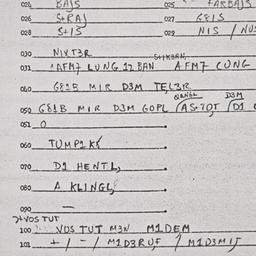 024 BAJS 025 FARBAJS
026 S+RAJ 027 681S
028 S+1S 029 NIS / NUS
030 NIVT3R
031 1AFM7 LUNG 12 BAN AFM7 CUNG
040 681B MIR D3M TEL3R
D3M
050 681B MIR D3M GOPL (AS+7OT (D1
051 O
060 TUMP1K
070 D1 HENTL,
080 A KLINGL,
090 —
7+VOS TUT
100 VOS TUT M3N M1DEM
101 + / - / M1D3RUF / M1D3MIT